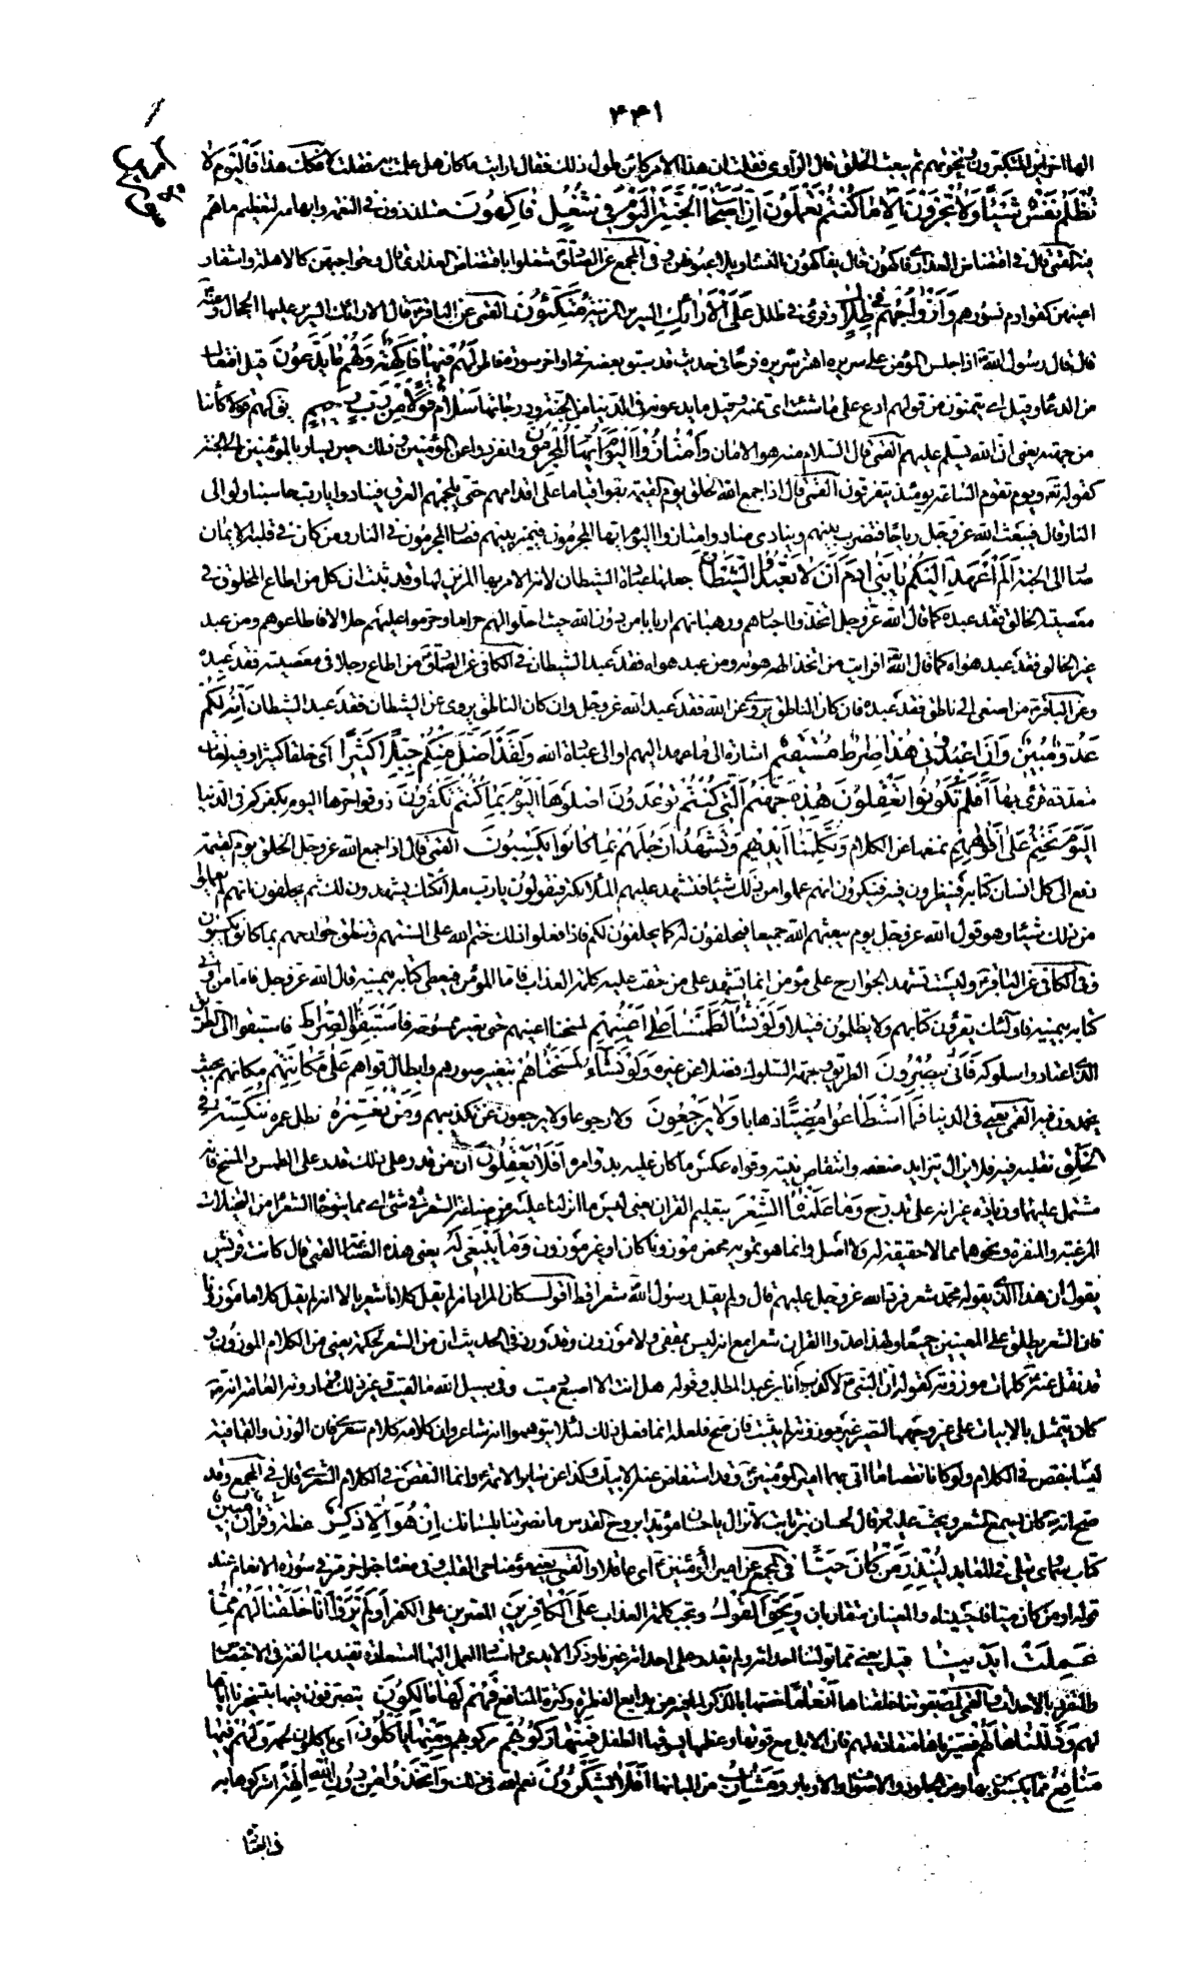 ٤٤١
ثم يبعث الخلق قال الراوي فقلت ان هذا الامر كاين طول ذلك فقال ارايت ما كان هل علمت به فقلت لا فكك هذا فَالْيَوْمَ لا
تُظْلَمُ نَفْسٌ شَيْئًا وَلا تُجْزَوْنَ إِلَّا مَا كُنْتُمْ تَعْمَلُونَ إِنَّ أَصْحَابَ الْجَنَّةِ الْيَوْمَ فِي شُغُلٍ فَاكِهُونَ متلذذون في النعمة وابهامه لتعظيم ما هم
فيه القمي قال في افتضاض العذارى فاكهون قال يفاكهون النساء ويلاعبونهن وفي المجمع عن الصادق شغلوا بافتضاض العذارى قال وحواجبهن كالاهلة واشفار
اعينهن كقوادم نسورهم وَأَزْوَاجُهُمْ فِي ظِلالٍ وقرئ في ظلل عَلَى الْأَرَائِكِ السرر المزينة مُتَّكِئُونَ القمي عن الباقر قال الارائك السرر عليها الحجال وعنه
قال قال رسول الله اذا جلس المؤمن على سريره اهتز سريره فرحا في حديث قد سبق بعضه في اواخر سورة فاطر لَهُمْ فِيهَا فَاكِهَةٌ وَلَهُمْ مَا يَدَّعُونَ قيل افتعال
من الدعاء وقيل اي يتمنون من قولهم ادع علي ما شئت اي تمنه وقيل ما يدعونه في الدنيا من الجنة ودرجاتها سَلامٌ قَوْلًا مِنْ رَبٍّ رَحِيمٍ
من جهته يعني ان الله يسلم عليهم القمي قال السلام منه هو الامان وَامْتَازُوا الْيَوْمَ أَيُّهَا الْمُجْرِمُونَ وانفردوا عن المؤمنين وذلك حين يسار بالمؤمنين الى الجنة
كقوله تعالى ويوم تقوم الساعة يومئذ يتفرقون القمي قال اذا جمع الله الخلق يوم القيمة بقوا قياما على اقدامهم حتى يلجمهم العرق فينادوا يا رب حاسبنا ولو الى
النار قال فيبعث الله عز وجل رياحا فتضرب بينهم وينادي مناد وامتازوا اليوم ايها المجرمون فيميز بينهم فصار المجرمون في النار ومن كان في قلبه الايمان
صار الى الجنة أَلَمْ أَعْهَدْ إِلَيْكُمْ يَا بَنِي آدَمَ أَنْ لا تَعْبُدُوا الشَّيْطَانَ جعلها عبادة الشيطان لانه الامر بها المزين لها وقد ثبت ان كل من اطاع المخلوق في
معصية الخالق فقد عبده كما قال الله عز وجل اتخذوا احبارهم ورهبانهم اربابا من دون الله حيث احلوا لهم حراما وحرموا عليهم حلالا فاطاعوهم ومن عبد
غير الخالق فقد عبد هواه كما قال الله افرايت من اتخذ الهه هويه ومن عبد هواه فقد عبد الشيطان في الكافي عن الصادق من اطاع رجلا في معصيته فقد عبده
وعن الباقر من اصغى الى ناطق فقد عبده فان كان الناطق يروي عن الله فقد عبد الله عز وجل وان كان الناطق يروي عن الشيطان فقد عبد الشيطان إِنَّهُ لَكُمْ
عَدُوٌّ مُبِينٌ وَأَنِ اعْبُدُونِي هَذَا صِرَاطٌ مُسْتَقِيمٌ اشارة الى ما عهد اليهم او الى عبادة الله وَلَقَدْ أَضَلَّ مِنْكُمْ جِبِلًّا كَثِيرًا اي خلقا كثيرا وفيه لغات
متعددة قرئ بها أَفَلَمْ تَكُونُوا تَعْقِلُونَ هَذِهِ جَهَنَّمُ الَّتِي كُنْتُمْ تُوعَدُونَ اصْلَوْهَا الْيَوْمَ بِمَا كُنْتُمْ تَكْفُرُونَ ذوقوا حرها اليوم بكفركم في الدنيا
الْيَوْمَ نَخْتِمُ عَلَى أَفْوَاهِهِمْ نمنعها عن الكلام وَتُكَلِّمُنَا أَيْدِيهِمْ وَتَشْهَدُ أَرْجُلُهُمْ بِمَا كَانُوا يَكْسِبُونَ القمي قال اذا جمع الله عز وجل الخلق يوم القيمة
دفع الى كل انسان كتابه فينظرون فيه فينكرون انهم عملوا من ذلك شيئا فتشهد عليهم الملائكة فيقولون يا رب ملائكتك يشهدون لك ثم يحلفون انهم لم يعملوا
من ذلك شيئا وهو قول الله عز وجل يوم يبعثهم الله جميعا فيحلفون له كما يحلفون لكم فاذا فعلوا ذلك ختم الله على السنتهم وتنطق جوارحهم بما كانوا يكسبون
وفي الكافي عن الباقر وليست تشهد الجوارح على مؤمن انما تشهد على من حقت عليه كلمة العذاب فاما المؤمن فيعطى كتابه بيمينه قال الله عز وجل فاما من اوتي
كتابه بيمينه فاولئك يقرؤن كتابهم ولا يظلمون فتيلا وَلَوْ نَشَاءُ لَطَمَسْنَا عَلَى أَعْيُنِهِمْ لمسحنا اعينهم حتى تصير ممسوحة فَاسْتَبَقُوا الصِّرَاطَ فاستبقوا الى الطريق
الذي اعتادوا سلوكه فَأَنَّى يُبْصِرُونَ الطريق وجهة السلوك فضلا عن غيره وَلَوْ نَشَاءُ لَمَسَخْنَاهُمْ بتغيير صورهم وابطال قواهم عَلَى مَكَانَتِهِمْ مكانهم بحيث
يجمدون فيه القمي يعني في الدنيا فَمَا اسْتَطَاعُوا مُضِيًّا ذهابا وَلا يَرْجِعُونَ ولا رجوعا ولا يرجعون عن تكذيبهم وَمَنْ نُعَمِّرْهُ نطل عمره نُنَكِّسْهُ فِي
الْخَلْقِ نقلبه فيه فلا يزال يتزايد ضعفه وانتقاص بنيته وقواه عكس ما كان عليه بدو امره أَفَلا يَعْقِلُونَ ان من قدر على ذلك قدر على الطمس والمسخ فانه
مشتمل عليهما وزيادة غير انه على تدرج وَمَا عَلَّمْنَاهُ الشِّعْرَ بتعليم القران يعني ليس ما انزلنا عليه من صناعة الشعر في شيء اي مما يتوخاه الشعراء من التخيلات
المرغبة والمنفرة ونحوها مما لا حقيقة له ولا اصل وانما هو تمويه محض موزونا كان او غير موزون وَمَا يَنْبَغِي لَهُ يعني هذه الصناعة القمي قال كانت قريش
يقول ان هذا الذي يقوله محمد شعر فرد الله عز وجل عليهم قال ولم يقل رسول الله شعرا قط اقول كان المراد انه لم يقل كلاما شعريا لا انه لم يقل كلاما موزونا
فان الشعر يطلق على المعنيين جميعا ولهذا عدوا القران شعرا مع انه ليس بمقفى ولا موزون وقد ورد في الحديث ان من الشعر لحكمة يعني من الكلام الموزون و
قد نقل عنه كلمات موزونة كقوله انا النبي لا كذب انا ابن عبد المطلب وقوله هل انت الا اصبع دميت وفي سبيل الله ما لقيت وغير ذلك
كان يتمثل بالابيات على غير وجهها لتصير غير موزونة لم يثبت فان صح فلعله انما فعل ذلك لئلا يتوهموا انه شاعر وان كلامه كلام شعري فان الوزن والقافية
ليسا بنقص في الكلام ولو كانا نقصا ما اتى بهما امير المؤمنين وقد استفاض عنه الابيات وكذا عن ساير الائمة وانما النقص في الكلام الشعري قال في المجمع وقد
صح انه كان يسمع الشعر ويحث عليه وقال لحسان بن ثابت لا تزال يا حسان مؤيدا بروح القدس ما نصرتنا بلسانك إِنْ هُوَ إِلَّا ذِكْرٌ عظة وَقُرْآنٌ مُبِينٌ
كتاب سماوي يتلى في المعابد لِيُنْذِرَ مَنْ كَانَ حَيًّا في المجمع عن امير المؤمنين اي عاقلا والقمي يعني مؤمنا حي القلب وفي معناه خبر اخر مر في سورة الانعام عند
قوله او من كان ميتا فاحييناه والمعنيان متقاربان وَيَحِقَّ الْقَوْلُ وتجب كلمة العذاب عَلَى الْكَافِرِينَ المصرين على الكفر أَوَلَمْ يَرَوْا أَنَّا خَلَقْنَا لَهُمْ مِمَّا
عَمِلَتْ أَيْدِينَا قيل يعني مما تولينا احداثه ولم يقدر على احداثه غيرنا وذكر الايدي واسناد العمل اليها استعارة تفيد مبالغة في الاختصاص
والتفرد بالاحداث والقمي اي بقوتنا خلقناها أَنْعَامًا خصها بالذكر لما فيها من بدايع الفطرة وكثرة المنافع فَهُمْ لَهَا مَالِكُونَ يتصرفون فيها بتسخيرنا اياها
لهم وَذَلَّلْنَاهَا لَهُمْ فصيرناها منقادة لهم فان الابل مع قوتها وعظمها يسوقها الطفل فَمِنْهَا رَكُوبُهُمْ مركوبهم وَمِنْهَا يَأْكُلُونَ اي يأكلون لحمه وَلَهُمْ فِيهَا
مَنَافِعُ مما يكسبون بها ومن الجلود والاصواف والاوبار وَمَشَارِبُ من البانها أَفَلا يَشْكُرُونَ نعم الله في ذلك وَاتَّخَذُوا مِنْ دُونِ اللَّهِ آلِهَةً اشركوها به